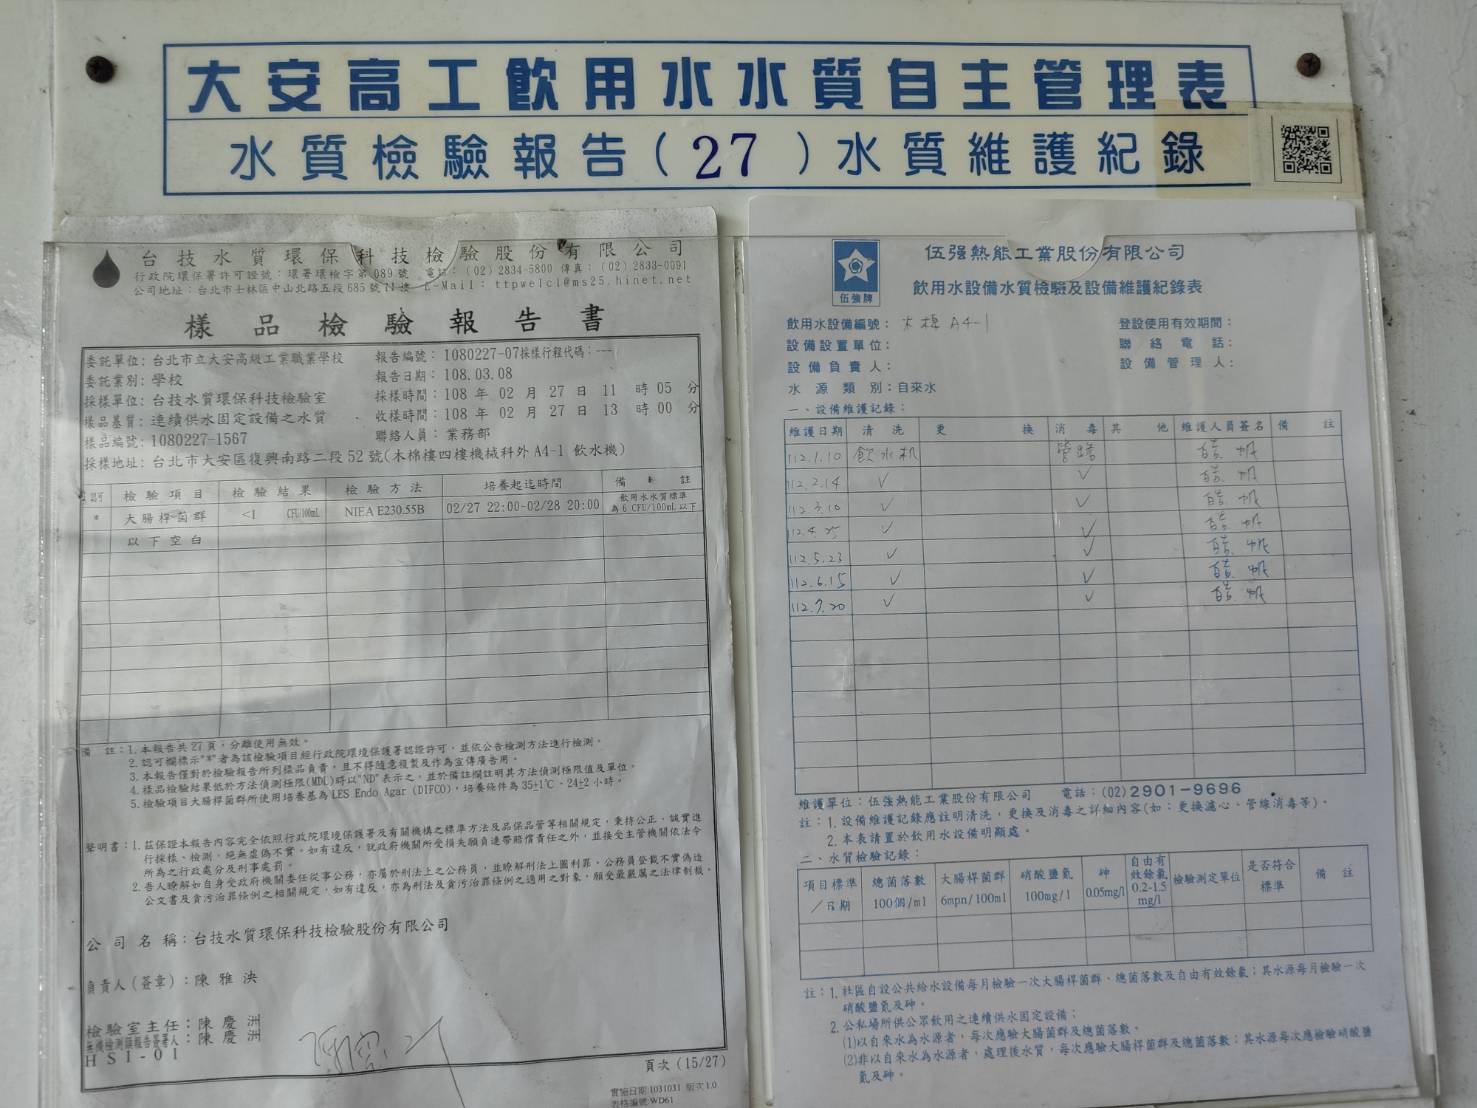 大安高工飲用水水質自主管理表
水質檢驗報告(27)水質維護紀錄
台技水質環保科技檢驗股份有限公司
行政院環保署許可證號：環署環檢字第089號 電話：(02)2834-5800 傳真：(02)2833-0091
公司地址：台北市士林區中山北路五段685號11樓 E-Mail：ttpwelcl@ms25.hinet.net
樣品檢驗報告書
委託單位：台北市立大安高級工業職業學校 報告編號：1080227-07採樣行程代碼：---
委託業別：學校 報告日期：108.03.08
採樣單位：台技水質環保科技檢驗室 採樣時間：108年02月27日11時05分
樣品基質：連續供水固定設備之水質 收樣時間：108年02月27日13時00分
樣品編號：1080227-1567 聯絡人員：業務部
採樣地址：台北市大安區復興南路二段52號(木棉樓四樓機械科外A4-1 飲水機)
認可 檢驗項目 檢驗結果 檢驗方法 培養起迄時間 備註
* 大腸桿菌群 <1 CFU/100mL NIEA E230.55B 02/27 22:00-02/28 20:00 飲用水水質標準為6 CFU/100mL以下
以下空白
備註：1.本報告共27頁，分離使用無效。
2.認可欄標示"*"者為該檢驗項目經行政院環境保護署認證許可，並依公告檢測方法進行檢測。
3.本報告僅對於檢驗報告所列樣品負責，且不得隨意複製及作為宣傳廣告用。
4.樣品檢驗結果低於方法偵測極限(MDL)時以"ND"表示之，並於備註欄註明其方法偵測極限值及單位。
5.檢驗項目大腸桿菌群所使用培養基為LES Endo Agar (DIFCO)，培養條件為35±1℃、24±2小時。
聲明書：1.茲保證本報告內容完全依照行政院環境保護署及有關機構之標準方法及品保品管等相關規定，秉持公正、誠實進
行採樣、檢測，絕無虛偽不實。如有違反，就政府機關所受損失願負連帶賠償責任之外，並接受主管機關依法令
所為之行政處分及刑事處罰。
2.吾人瞭解如自身受政府機關委任從事公務，亦屬於刑法上之公務員，並瞭解刑法上圖利罪、公務員登載不實偽造
公文書及貪污治罪條例之相關規定，如有違反，亦為刑法及貪污治罪條例之適用之對象，願受最嚴厲之法律制裁。
公司名稱：台技水質環保科技檢驗股份有限公司
負責人(簽章)：陳雅泱
檢驗室主任：陳慶洲
無機檢測類報告簽署人：陳慶洲
HSI-01
頁次(15/27)
實施日期:1031031 版次1.0
表格編號:WD61
伍強牌
伍强熱能工業股份有限公司
飲用水設備水質檢驗及設備維護紀錄表
飲用水設備編號：木棉 A4-1 登設使用有效期間：
設備設置單位： 聯絡電話：
設備負責人： 設備管理人：
水源類別：自來水
一、設備維護記錄：
維護日期 清洗 更換 消毒 其他 維護人員簽名 備註
112.1.10 飲水机 管路
112.2.14 ✓ ✓
112.3.10 ✓ ✓
112.4.25 ✓ ✓
112.5.23 ✓ ✓
112.6.15 ✓ ✓
112.7.20 ✓ ✓
維護單位：伍強熱能工業股份有限公司 電話：(02)2901-9696
註：1.設備維護記錄應註明清洗，更換及消毒之詳細內容(如：更換濾心、管線消毒等)。
2.本表請置於飲用水設備明顯處。
二、水質檢驗記錄：
項目標準／日期 總菌落數100個/ml 大腸桿菌群6mpn/100ml 硝酸鹽氮100mg/l 砷0.05mg/l 自由有效餘氯0.2-1.5mg/l 檢驗測定單位 是否符合標準 備註
註：1.社區自設公共給水設備每月檢驗一次大腸桿菌群、總菌落數及自由有效餘氯；其水源每月檢驗一次
硝酸鹽氮及砷。
2.公私場所供公眾飲用之連續供水固定設備；
(1)以自來水為水源者，每次應驗大腸桿菌群及總菌落數。
(2)非以自來水為水源者，處理後水質，每次應驗大腸桿菌群及總菌落數；其水源每次應檢驗硝酸鹽
氮及砷。